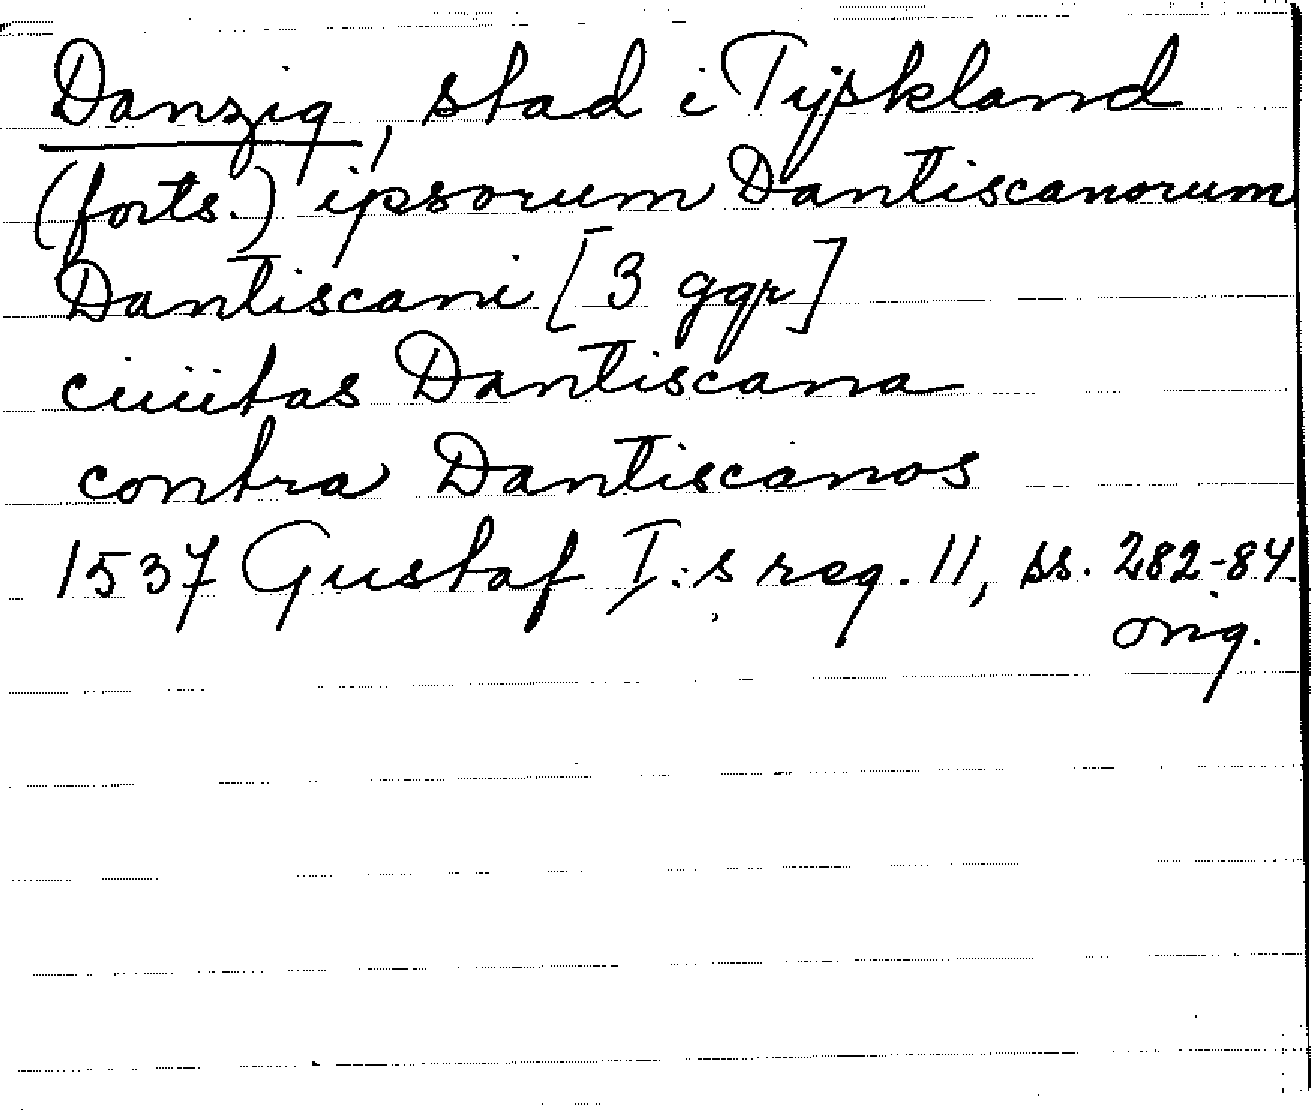 Danzig, stad i Tyskland
(forts.) ipsorum Dantiscanorum
Dantiscani [3 ggr]
ciuitas Dantiscana
contra Dantiscanos
1537 Gustaf I:s reg. 11, ss. 282-84
orig.